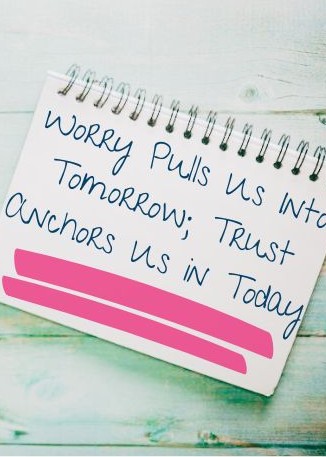 Worry Pulls Us Into
Tomorrow; Trust
Anchors Us in Today